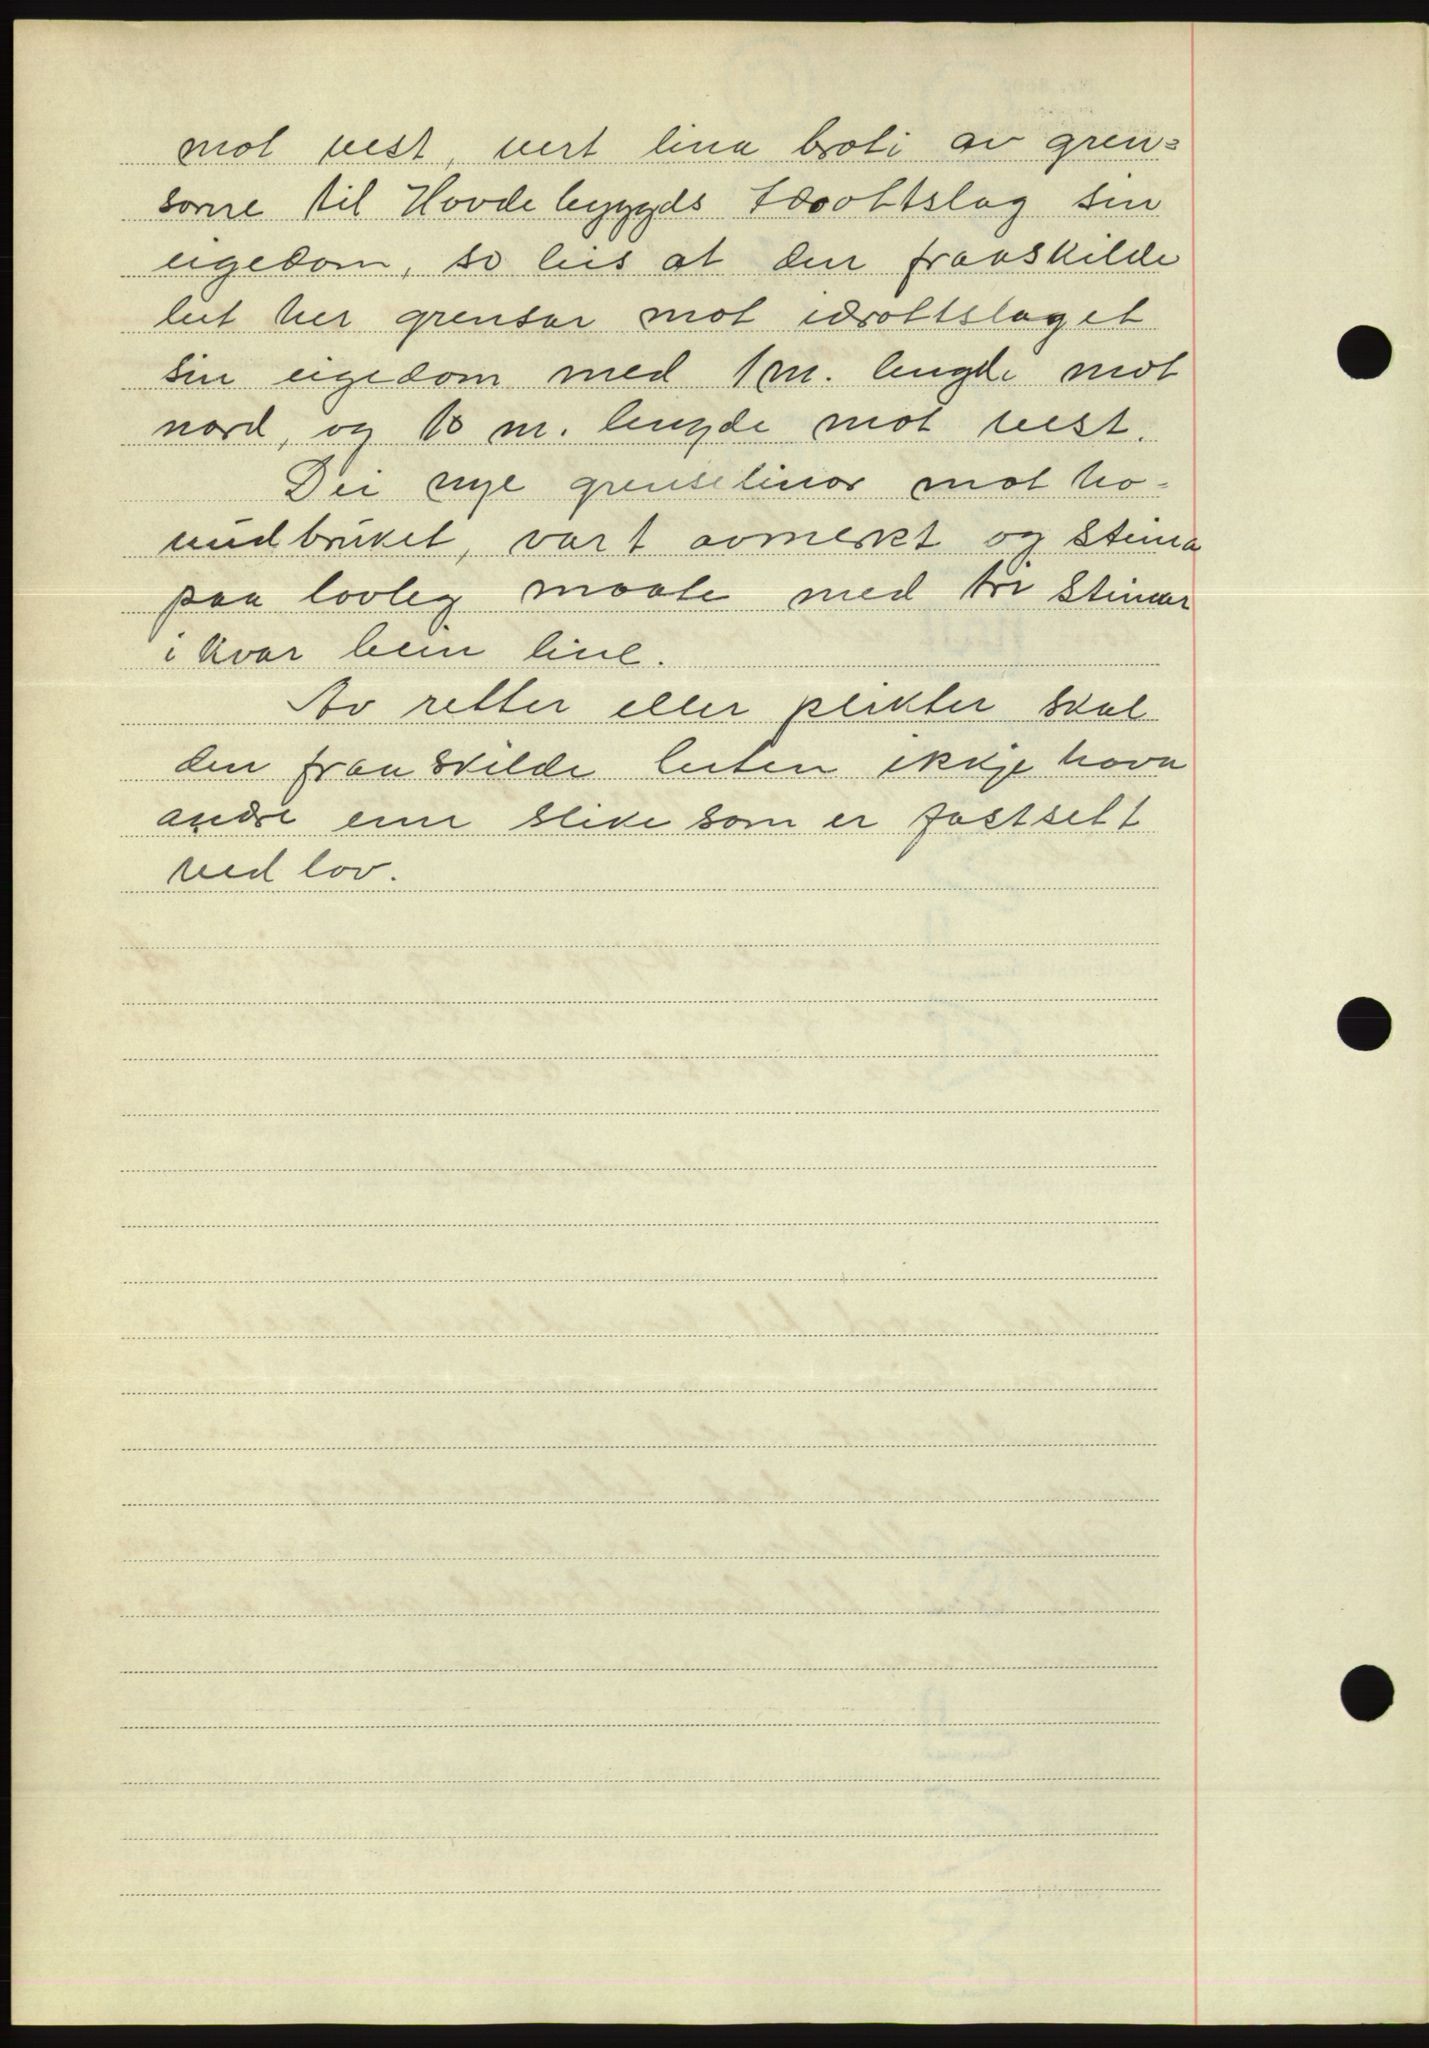 mot vest, vert lina broti av gren=
sorne til Hovdebygds Idrottslag sin
eigedom, so leis at den fraaskilde
lut her grensar mot idrottslaget
sin eigedom med 1 m. lengde mot
nord, og 10 m. lengde mot vest.
Dei nye grenselinor mot ho-
vudbruket, vart avmerkt og steina
paa lovleg maate med tri steinar
i kvar bein line.
Av retter eller plikter skal
den fraaskilde luten ikkje hava
andre enn slike som er fastsett
ved lov.